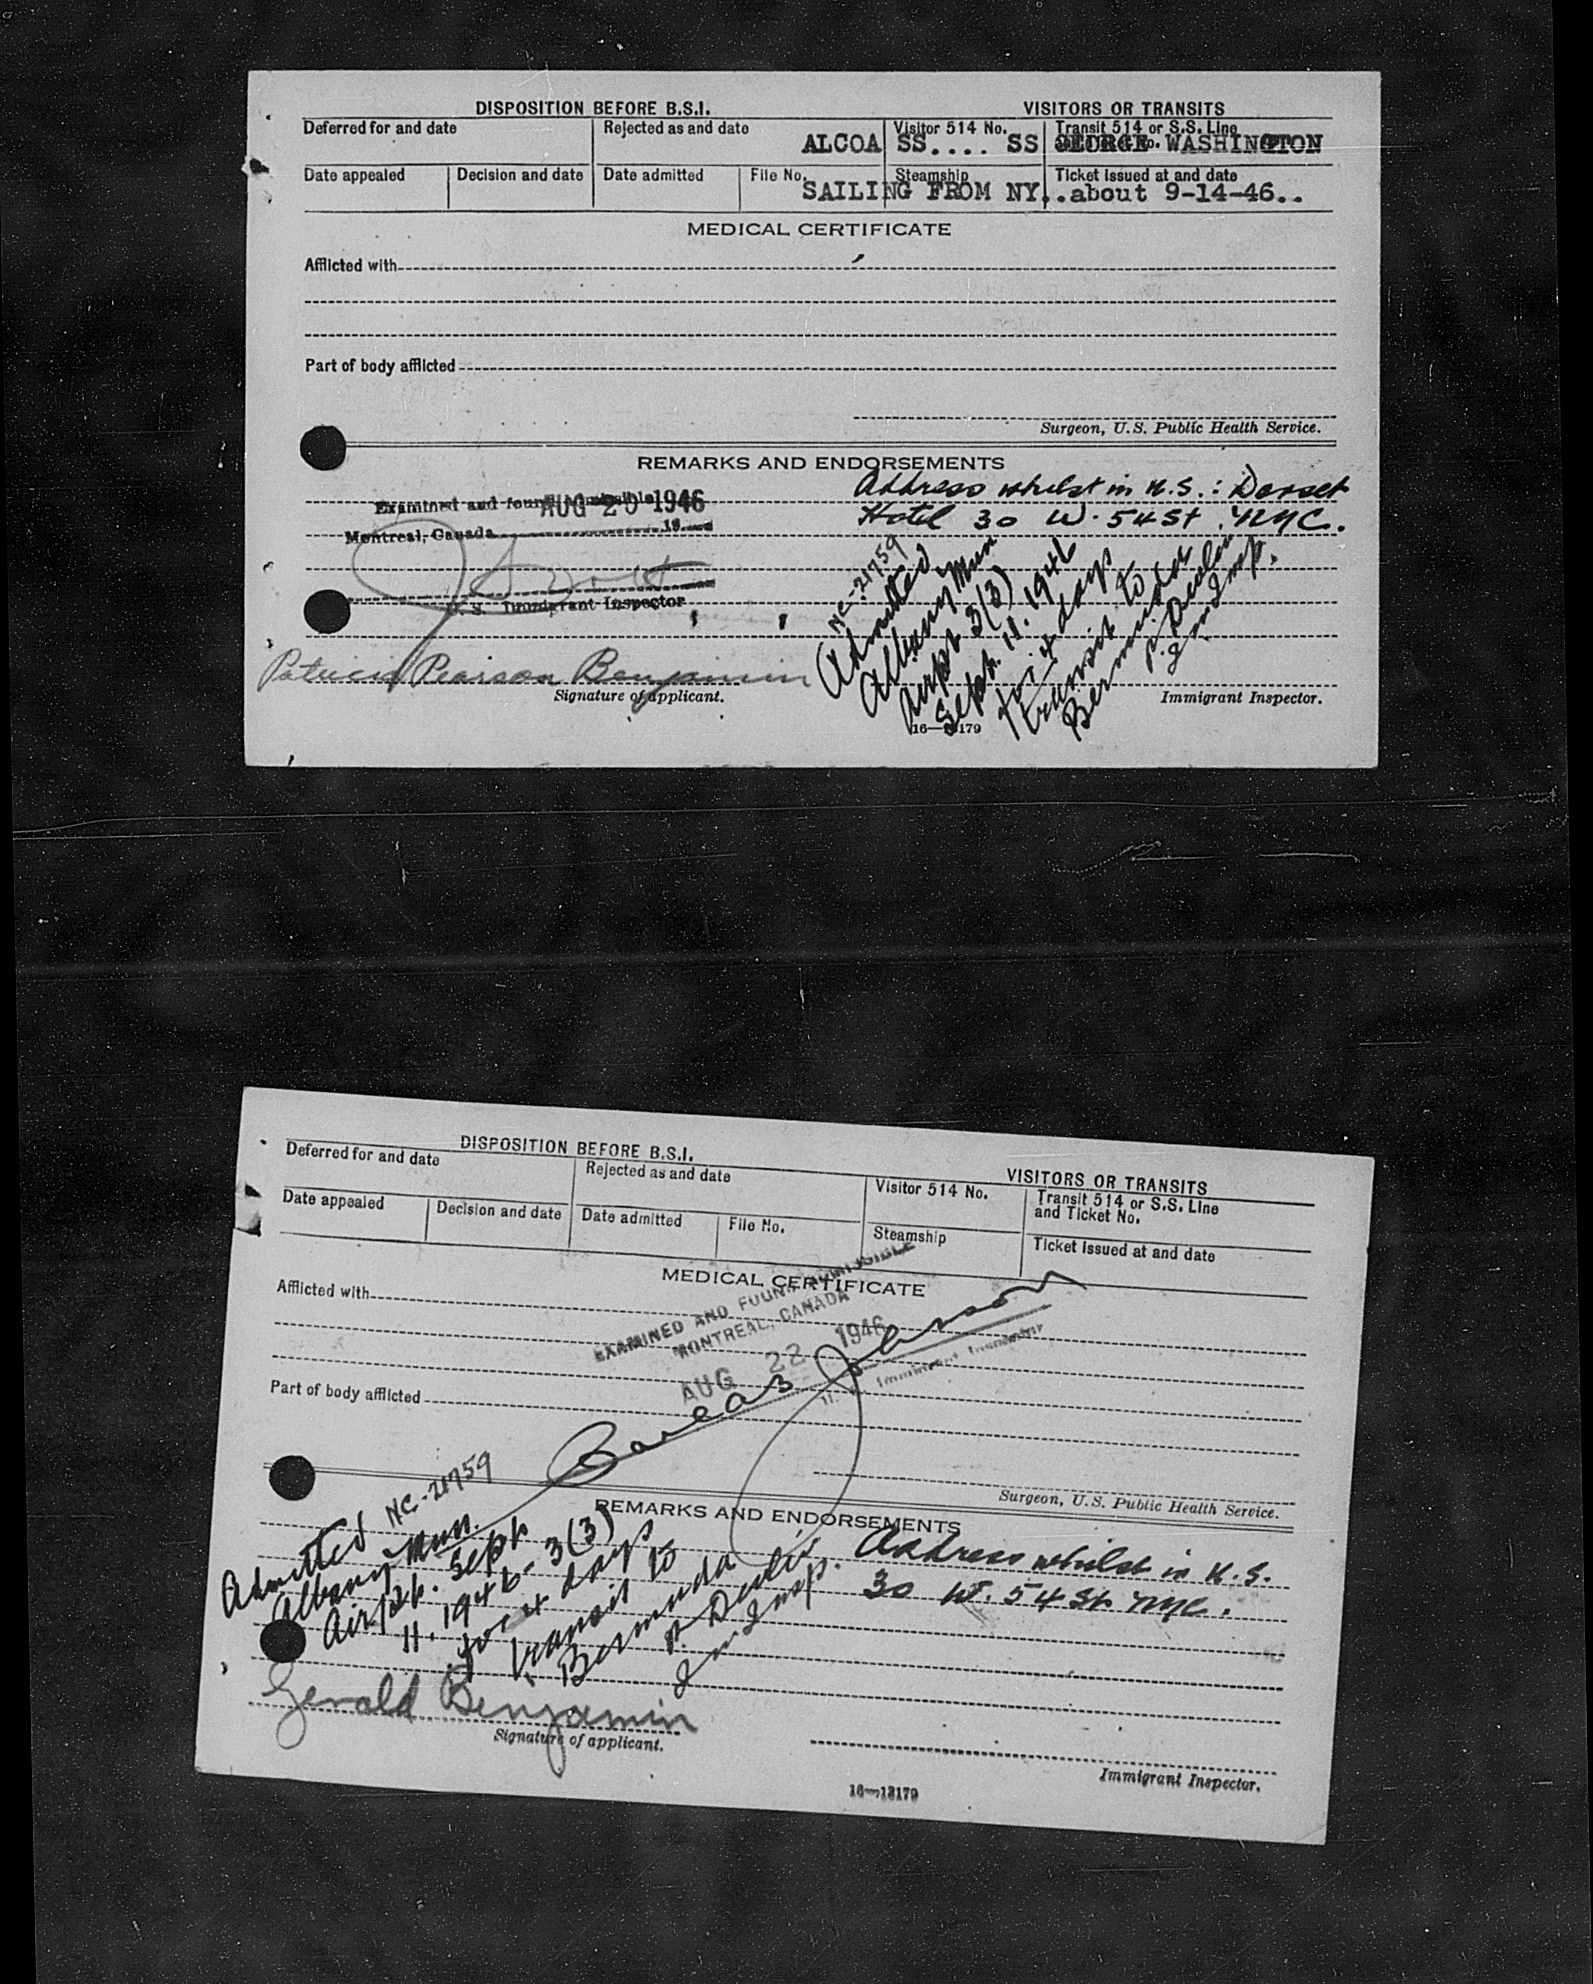 DISPOSITION BEFORE B.S.I. VISITORS OR TRANSITS
Deferred for and date Rejected as and date Visitor 514 No. Transit 514 or S.S. Line
ALCOA SS.... SS GEORGE WASHINGTON
Date appealed Decision and date Date admitted File No. Steamship Ticket issued at and date
SAILING FROM NY..about 9-14-46..
MEDICAL CERTIFICATE
Afflicted with
Part of body afflicted
Surgeon, U.S. Public Health Service.
REMARKS AND ENDORSEMENTS
Address whilst in U.S.: Dorset
Hotel 30 W. 54 St. NYC.
Examined and found admissible
AUG 20 1946
Montreal, Canada 19
U. S. Immigrant Inspector
NC-21759
Admitted
Albany Mun
Airpt 3(3)
Sept. 11. 1946
for 4 days
transit to
Bermuda
Im Insp.
Patricia Pearson Benjamin
Signature of applicant.
Immigrant Inspector.
16—13179
DISPOSITION BEFORE B.S.I. VISITORS OR TRANSITS
Deferred for and date Rejected as and date Visitor 514 No. Transit 514 or S.S. Line
and Ticket No.
Date appealed Decision and date Date admitted File No. Steamship Ticket issued at and date
MEDICAL CERTIFICATE
Afflicted with
EXAMINED AND FOUND ADMISSIBLE
MONTREAL, CANADA
AUG 22 1946
U. S. Immigrant Inspector
Part of body afflicted
Surgeon, U.S. Public Health Service.
REMARKS AND ENDORSEMENTS
Address whilst in U.S.
30 W. 54 St. NYC.
NC-21759
Admitted
Albany Mun.
Airpt. Sept
11. 1946- 3(3)
for 4 days
transit to
Bermuda
Im Insp.
Gerald Benjamin
Signature of applicant.
Immigrant Inspector.
16—13179